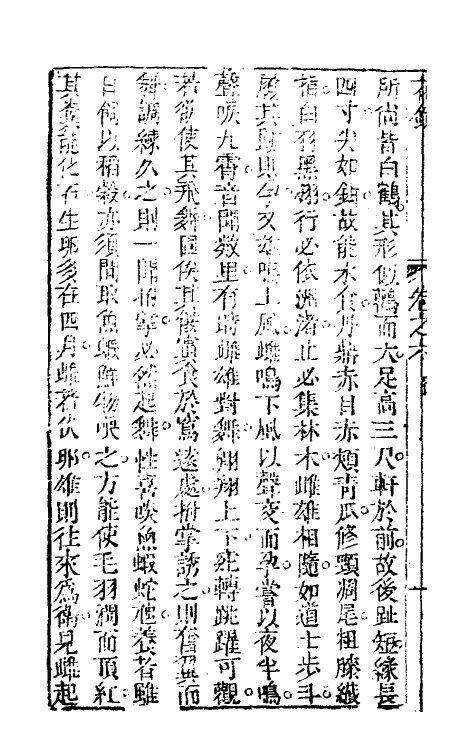 花鏡
卷之六
所尚皆白鶴其形似鸛而大足高三尺軒於前故後趾短緣長
四寸尖如鉗故能水食丹鼎赤目赤頰青瓜修頸凋尾粗膝纖
指白羽黑翎行必依洲渚止必集林木雌雄相隨如道士步斗
履其跡則孕又雄鳴上風雌鳴下風以聲交而孕嘗以夜半鳴
聲唳九霄音聞數里有時雌雄對舞翱翔上下宛轉跳躍可觀
若欲使其飛舞圍俟其餒寘食於窵遠處拊掌誘之則奮翼而
舞調練久之則一聞拊掌必然起舞性喜啖魚蝦蛇虺養者雖
日飼以稻穀亦須間取魚蝦鮮物喂之方能使毛羽潤而頂紅
其糞能化石生卵多在四月雌若伏卵雄則往來為衛見雌起